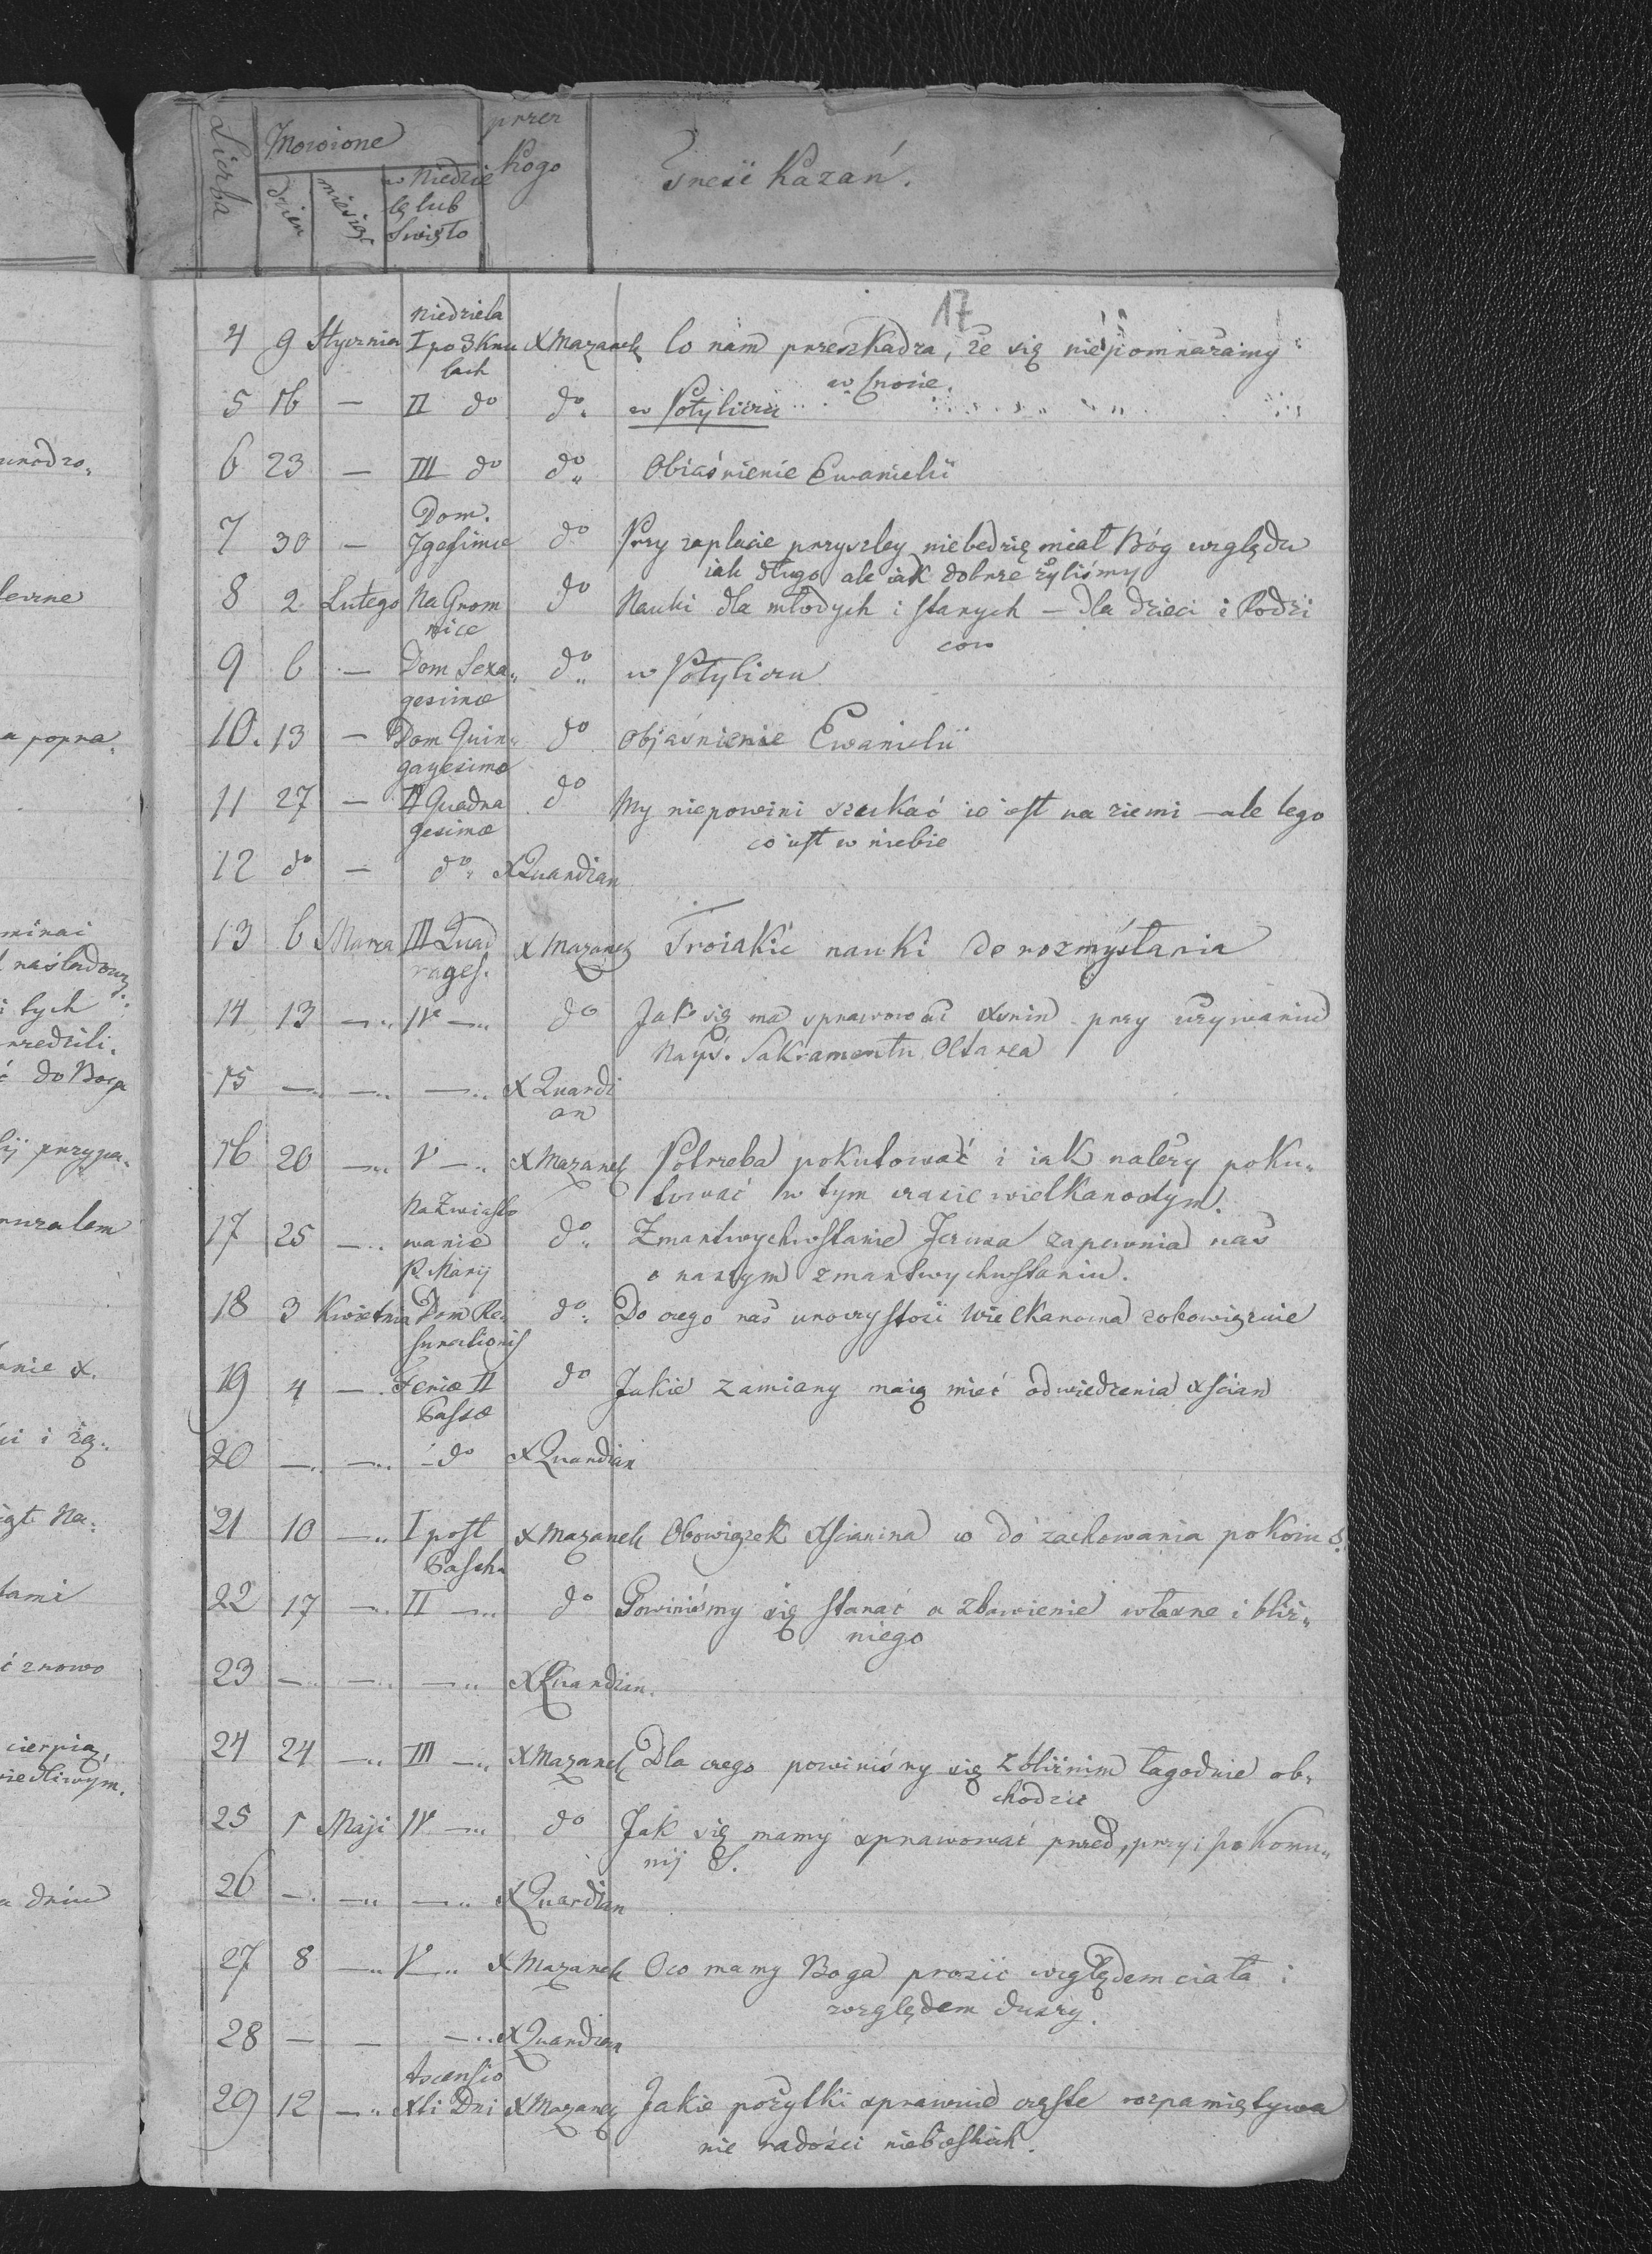 Liczba Mowione przez
dzien miesiąc w Niedzie kogo Treść Kazań.
lę lub
Swięto
17
niedziela
4 9 Stycznia I po 3 Kru X Mazanek Co nam przeszkadza, że się niepomnażamy
lach w Cnocie.
5 16 — II do do w Potyliczu
6 23 — III do do Obiaśnienie Ewanielii
Dom.
7 30 — do Przy zaplacie przyszley niebedzię miał Bóg względu
iak długo ale iak dobrze żyliśmy
8 2 Lutego Na Grom do Nauki dla młodych i starych — dla dzieci i Rodzi
nice cow
9 6 — Dom Sexa do w Potyliczu
gesimæ
10. 13 — Dom Quin do Objaśnienie Ewanielii
gagesimæ
11 27 — II Quadra do My niepowini szukać co iest na ziemi — ale tego
gesimæ co iest w niebie
12 do — do X Quardian
13 6 Marca III Quad X Mazanek Troiakie nauki do rozmyślania
rages.
14 13 —„ IV —„ do Jak się ma sprawować przy używaniu
Nayś. Sakramentu Ołtarza
15 —„ —„ —„ X Quardi
an
16 20 —„ V —„ X Mazanek Potrzeba pokutować i iak należy poku„
tować w tym czasie wielkanocnym.
Na Zwiasto
17 25 —„ wanie do Zmartwychwstanie Jezusa zapewnia nas
P. Marij o naszym zmartwychwstaniu.
18 3 Kwietnia Dom Re„ do Do czego nas uroczystość Wielkanocna zobowięzuie
surectionis
19 4 — Feriæ II do Jakie zamiary maią mieć odwiedzenia Xścian
do X Quardian
20 —„ —„
21 10 —„ I post X Mazanek Obowiązek Xścianina co do zachowania pokoiu S.
Pascha
22 17 —„ II —„ do Powiniśmy się starać o zbawienie własne i bliz„
niego
23 — —„ —„ X Quardian.
24 24 —„ III —„ X Mazanek Dla czego powiniśmy się z bliźnim łagodnie ob„
chodzić
25 1 Maji IV —„ do Jak się mamy sprawować przed, przy i po Komu„
nij S.
26 —. —„ —„ X Quardian
27 8 —„ V —„ X Mazanek Oco mamy Boga prosić względem ciała i
względem duszy.
28 — — —„ X Quardian
Ascensio
29 12 —„ Xti Dni X Mazanek Jakie pożytki sprawuie częste rozpamiętywa
nie radości niebieskich.